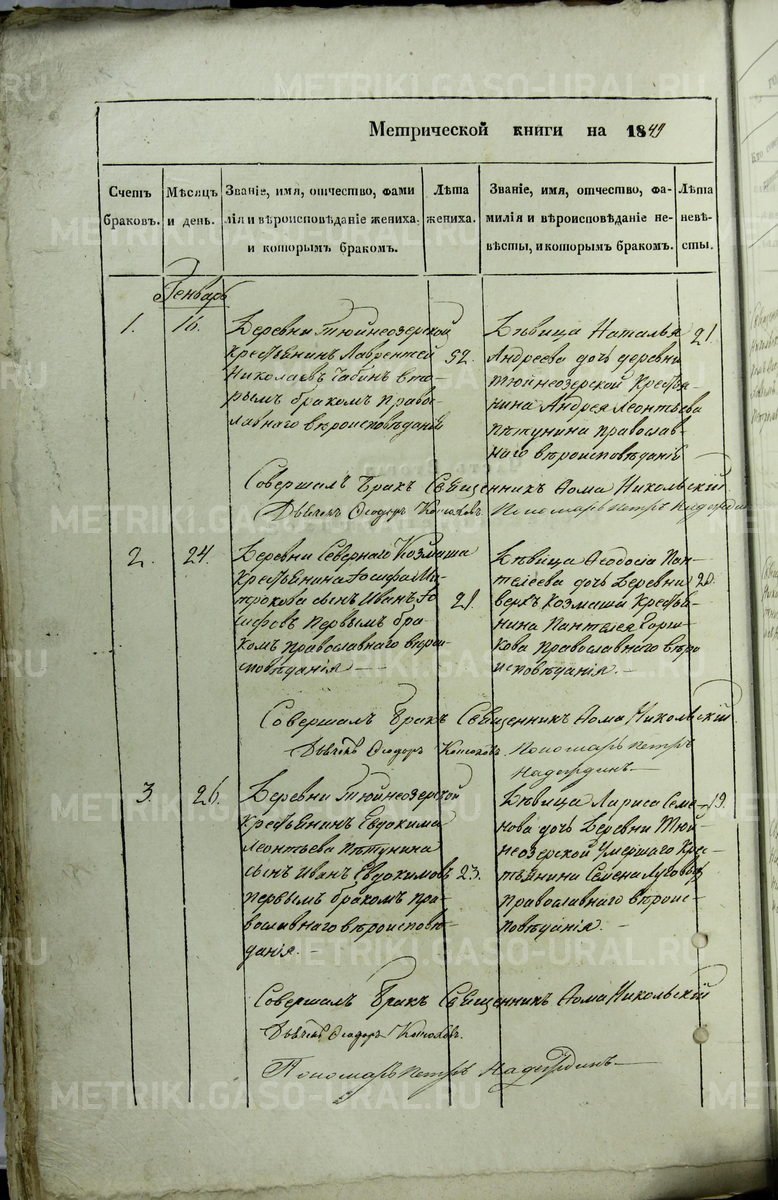 METRIKI.GASO-URAL.RU
Метрической книги на 1849
Счетъ браковъ.
Мѣсяцъ и день.
Званіе, имя, отчество, фами
лія и вѣроисповѣданіе жениха.
и которымъ бракомъ.
Лѣта
жениха.
Званіе, имя, отчество, фа-
милія и вѣроисповѣданіе не-
вѣсты, и которымъ бракомъ.
Лѣта
невѣ-
сты.
Генварь
1.
16.
Деревни Тюйнеозерской
крестьянинъ Лаврентей
Николаевъ Бабинъ вто-
рымъ бракомъ право-
славнаго вѣроисповѣданія
52.
Дѣвица Наталья
Андреева дочь деревни
Тюйнеозерской крестья-
нина Андрея Леонтьева
Пѣтунина православ-
наго вѣроисповѣданія
21.
Совершалъ бракъ Священникъ Ѳома Никольскій
Дьячекъ Ѳеодоръ Пономарь Петръ
2.
24.
Деревни Севернаго Козмаша
крестьянина Іосифа Ми-
трокова сынъ Иванъ Іо-
сифовъ первымъ бра-
комъ православнаго вѣрои-
сповѣданія
21.
Дѣвица Ѳеодосія Пан-
телеева дочь Деревни
верхъ Козмаша крестья-
нина Пантелея Горш-
кова православнаго вѣро
исповѣданія
20.
Совершалъ бракъ Священникъ Ѳома Никольскій
Дьячекъ Ѳеодоръ Пономарь Петръ
Надеждинъ
3.
26.
Деревни Тюйнеозерской
крестьянинъ Евдокима
Леонтьева Пѣтунина
сынъ Иванъ Евдокимовъ
первымъ бракомъ пра-
вославнаго вѣроисповѣ-
данія.
23.
Дѣвица Лариса Семе-
нова дочь Деревни Тюй-
неозерской умершаго крес-
тьянина Семена
православнаго вѣроис-
повѣданія.
19.
Совершалъ бракъ Священникъ Ѳома Никольскій
Дьячекъ Ѳеодоръ
Пономарь Петръ Надеждинъ